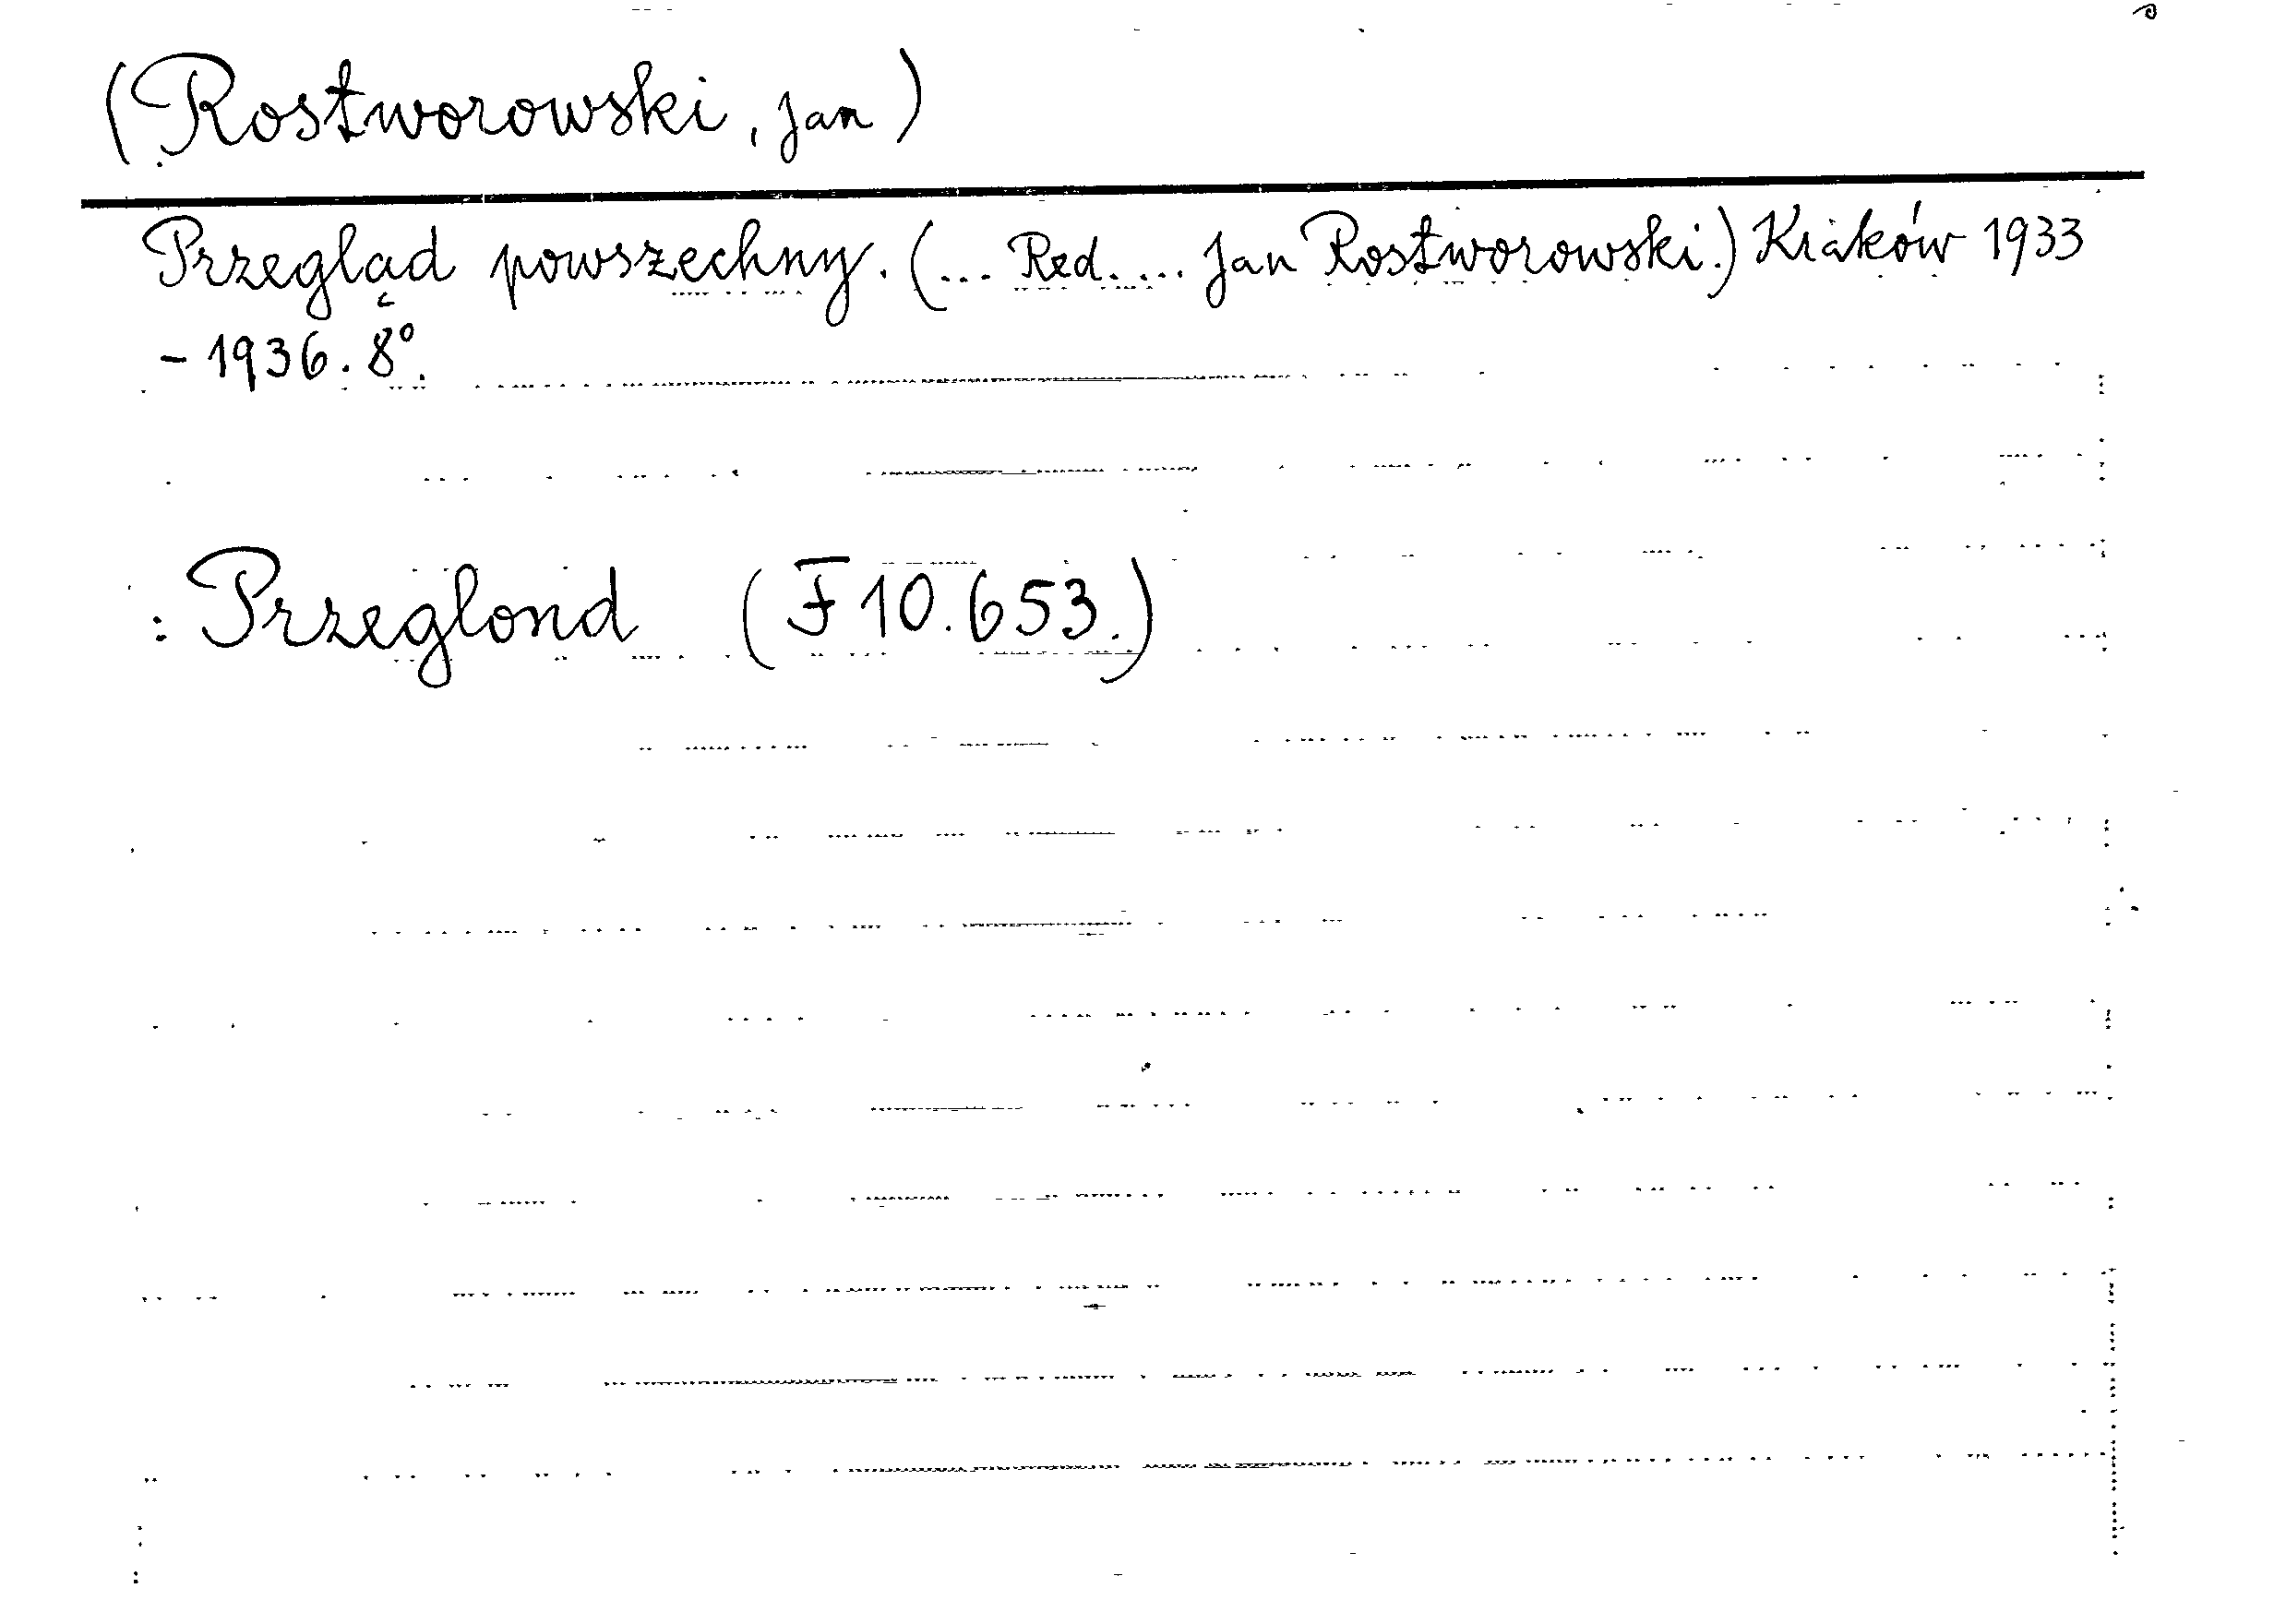 (Rostworowski, Jan)
Przegląd powszechny. (... Red. ... Jan Rostworowski.) Kraków 1933
- 1936. 8°.
: Przeglond (F 10.653.)